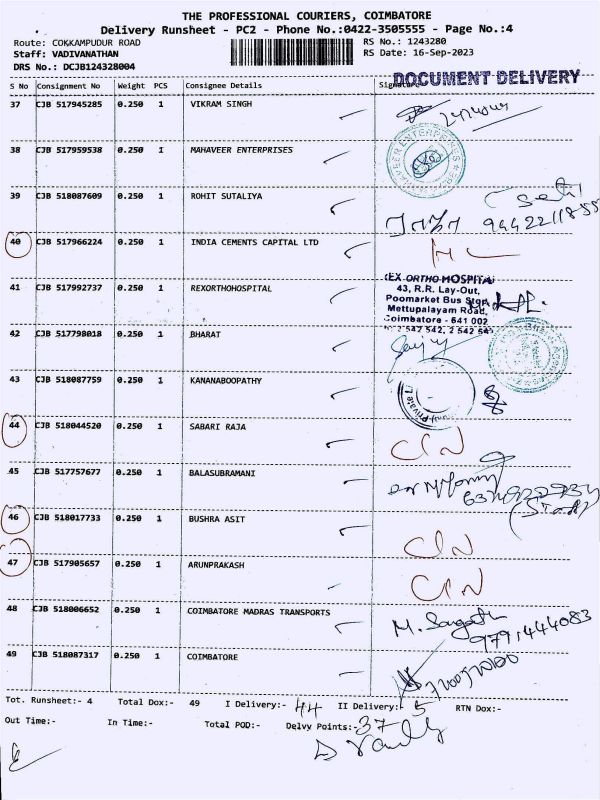 THE PROFESSIONAL COURIERS, COIMBATORE
Delivery Runsheet - PC2 - Phone No.:0422-3505555 - Page No.:4
Route: COKKAMPUDUR ROAD RS No.: 1243280
Staff: VADIVANATHAN RS Date: 16-Sep-2023
DRS No.: DCJB124328004
DOCUMENT DELIVERY
S No Consignment No Weight PCS Consignee Details Signature
37 CJB 517945285 0.250 1 VIKRAM SINGH
38 CJB 517959538 0.250 1 MAHAVEER ENTERPRISES
39 CJB 518087609 0.250 1 ROHIT SUTALIYA
9442211855
40 CJB 517966224 0.250 1 INDIA CEMENTS CAPITAL LTD
41 CJB 517992737 0.250 1 REXORTHOHOSPITAL
EX ORTHO HOSPITAL
43, R.R. Lay-Out,
Poomarket Bus Stop,
Mettupalayam Road,
Coimbatore - 641 002
2 542 542, 2 542 54
42 CJB 517798018 0.250 1 BHARAT
43 CJB 518087759 0.250 1 KANANABOOPATHY
44 CJB 518044520 0.250 1 SABARI RAJA
CIN
45 CJB 517757677 0.250 1 BALASUBRAMANI
46 CJB 518017733 0.250 1 BUSHRA ASIT
CIN
47 CJB 517905657 0.250 1 ARUNPRAKASH
CIN
48 CJB 518006652 0.250 1 COIMBATORE MADRAS TRANSPORTS
9791444083
49 CJB 518087317 0.250 1 COIMBATORE
Tot. Runsheet:- 4 Total Dox:- 49 I Delivery:- 44 II Delivery:- 5 RTN Dox:-
Out Time:- In Time:- Total POD:- Delvy Points:- 37